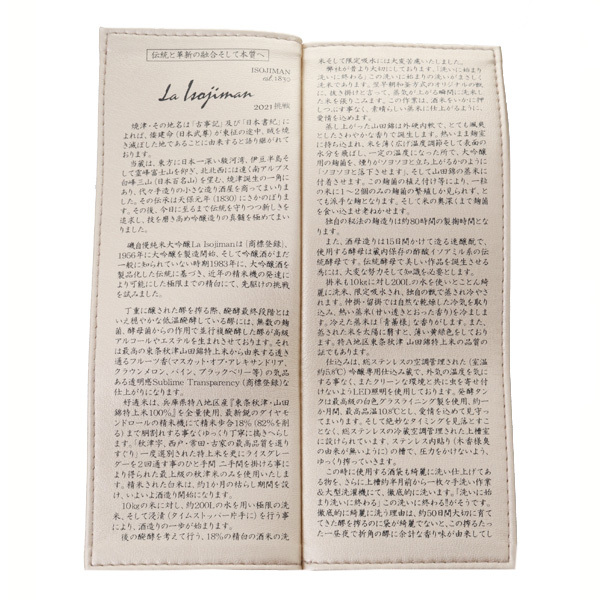 伝統と革新の融合そして本質へ
ISOJIMAN
est. 1830
La Isojiman
2021 挑戦
焼津・その地名は「古事記」及び「日本書紀」に
よれば、倭建命(日本武尊)が東征の途中、賊を焼
き滅ぼした地であることに由来すると語り継がれて
おります。
当蔵は、東方に日本一深い駿河湾、伊豆半島そ
して霊峰富士山を仰ぎ、北北西には遠く南アルプス
白峰三山(日本百名山)を望む、焼津誕生の一角に
あり、代々手造りの小さな造り酒屋を商ってまいりま
した。その伝承は天保元年(1830)にさかのぼりま
す。その後、今日に至るまで伝統を守りつつ新しさを
追求し、技を磨き高め吟醸造りの真髄を極めてまい
りました。
磯自慢純米大吟醸La Isojimanは(商標登録)、
1956年に大吟醸を製造開始、そして吟醸酒がまだ
一般に知られていない時期1983年に、大吟醸酒を
製品化した伝統に基づき、近年の精米機の発達に
より可能にした極限までの精白にて、先駆けの挑戦
を試みました。
丁重に醸された醪を搾る際、醗酵最終段階とは
いえ穏やかな低温醗酵している醪には、無数の麹
菌、酵母菌からの作用で並行複醗酵した醪が高級
アルコールやエステルを生まれさせております。それ
は最高の東条秋津山田錦特上米から由来する透き
通るフルーツ香(マスカット・オブ・アレキサンドリア、
クラウンメロン、パイン、ブラックベリー等)の気品
ある透明感Sublime Transparency(商標登録)な
仕上がりになります。
好適米は、兵庫県特A地区産『東条秋津・山田
錦特上米100%』を全量使用、最新鋭のダイヤモ
ンドロールの精米機にて精米歩合18%(82%を削
る)まで胴割れする事なくゆっくり丁寧に搗きへらしま
す。「秋津字、西戸・常田・古家の最高品質を選り
すぐり」一度選別された特上米を更にライスグレー
ダーを2回通す事のひと手間、二手間を掛ける事によ
り得られた最上級の秋津米のみを使用いたしま
す。精米された白米は、約1か月の枯らし期間を設
け、いよいよ酒造り開始になります。
10kgの米に対し、約200Lの水を用い極限の洗
米、そして浸漬(タイムストッパー片手に)を行う事に
より、酒造りの一歩が始まります。
後の醗酵を考えて行う、18%の精白の酒米の洗
米そして限定吸水には大変苦慮いたしました。
弊社が昔より大切にしております。「洗いに始まり
洗いに終わる」この洗いに始まりの洗いがまさしく
洗米であります。至早朝和釜方式のオリジナルの甑
に、抜き掛けと言って、蒸気が上がる瞬間に洗米し
た米を張りこみます。この作業は、酒米をいかに押
しつぶす事なく、素晴らしい蒸米に仕上がるように、
愛情を込めます。
蒸し上がった山田錦は外硬内軟で、とても風爽
としたさわやかな香りで誕生します。熱いまま麹室
に持ち込まれ、米を薄く広げ温度調節そして表面の
水分を飛ばし、一定の温度になった所で、大吟醸
用の麹菌を、煙りがソヨソヨと立ち上がるかのように
「ソヨソヨと落下させます」、そして山田錦の蒸米に
付着させます。この麹菌の植え付け等により、一粒
の米に1~2個のみの麹菌の繁殖しか見られず、と
ても派手な麹となります。そして米の奥深くまで麹菌
を食い込ませ老ねかせます。
独自の秘法の麹造りは約80時間の製麹時間とな
ります。
また、酒母造りは15日間かけて造る速醸酛で、
使用する酵母は蔵内保存の酢酸イソアミル系の伝
統酵母です。伝統酵母で美しい作品を誕生させる為
には、大変な努力そして知識を必要とします。
掛米も10kgに対し200Lの水を使いとことん綺
麗に洗米、限定吸水され、独自の甑で蒸され冷やさ
れます。仲掛・留掛では自然な乾燥した冷気を取り
込み、熱い蒸米(甘い透きとおった香り)を冷まし
ます。冷えた蒸米は「青薔様」な香りがします。また、
蒸された米を太陽に翳すと、薄い黄緑色をしており
ます。特A地区東条秋津 山田錦特上米の品質の
証でもあります。
仕込みは、総ステンレスの空調管理された(室温
約5.8℃)吟醸専用仕込み蔵で、外気の温度を気に
する事なく、またクリーンな環境と共に虫を寄せ付
けないようLED照明を使用しております。発酵タンク
は最高級の白色グラスライニング製を使用、約一
か月間、最高品温10.8℃とし、愛情を込めて見守っ
てまいります。そして絶妙なタイミングを見落とすこ
となく、総ステンレスの冷蔵空調管理された上槽室
に設けられています、ステンレス内貼り(木香様臭
の由来が無いように)の槽で、圧力をかけないよう、
ゆっくり搾っていきます。
この時に使用する酒袋も綺麗に洗い仕上げてあ
る物を、さらに上槽約半月前から一枚々手洗い作業
&大型洗濯機にて、徹底的に洗います。「洗いに始
まり洗いに終わる」この洗いに終わる!がそうです。
徹底的に綺麗に洗う理由は、約50日間大切に育て
てきた醪を搾るのに袋が綺麗でないと、この搾るたっ
た一昼夜で折角の醪に余計な香り味が由来してし